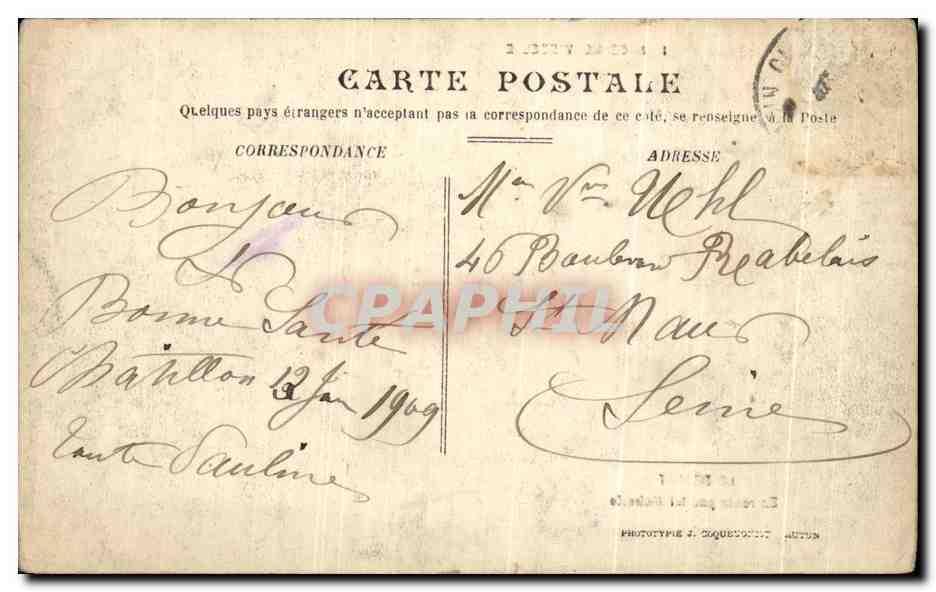 CARTE POSTALE
Quelques pays étrangers n'acceptent pas la correspondance de ce côté, se renseigner à la Poste
CORRESPONDANCE
ADRESSE
Bonjour
&
Bonne Santé
Châtillon 12 Jan 1909
Tante Pauline
Mme Vve Uehl
46 Boulevar Rabelais
St Mau
Seine
CPAPHIL
PHOTOTYPIE J. COQUEUGNIOT AUTUN